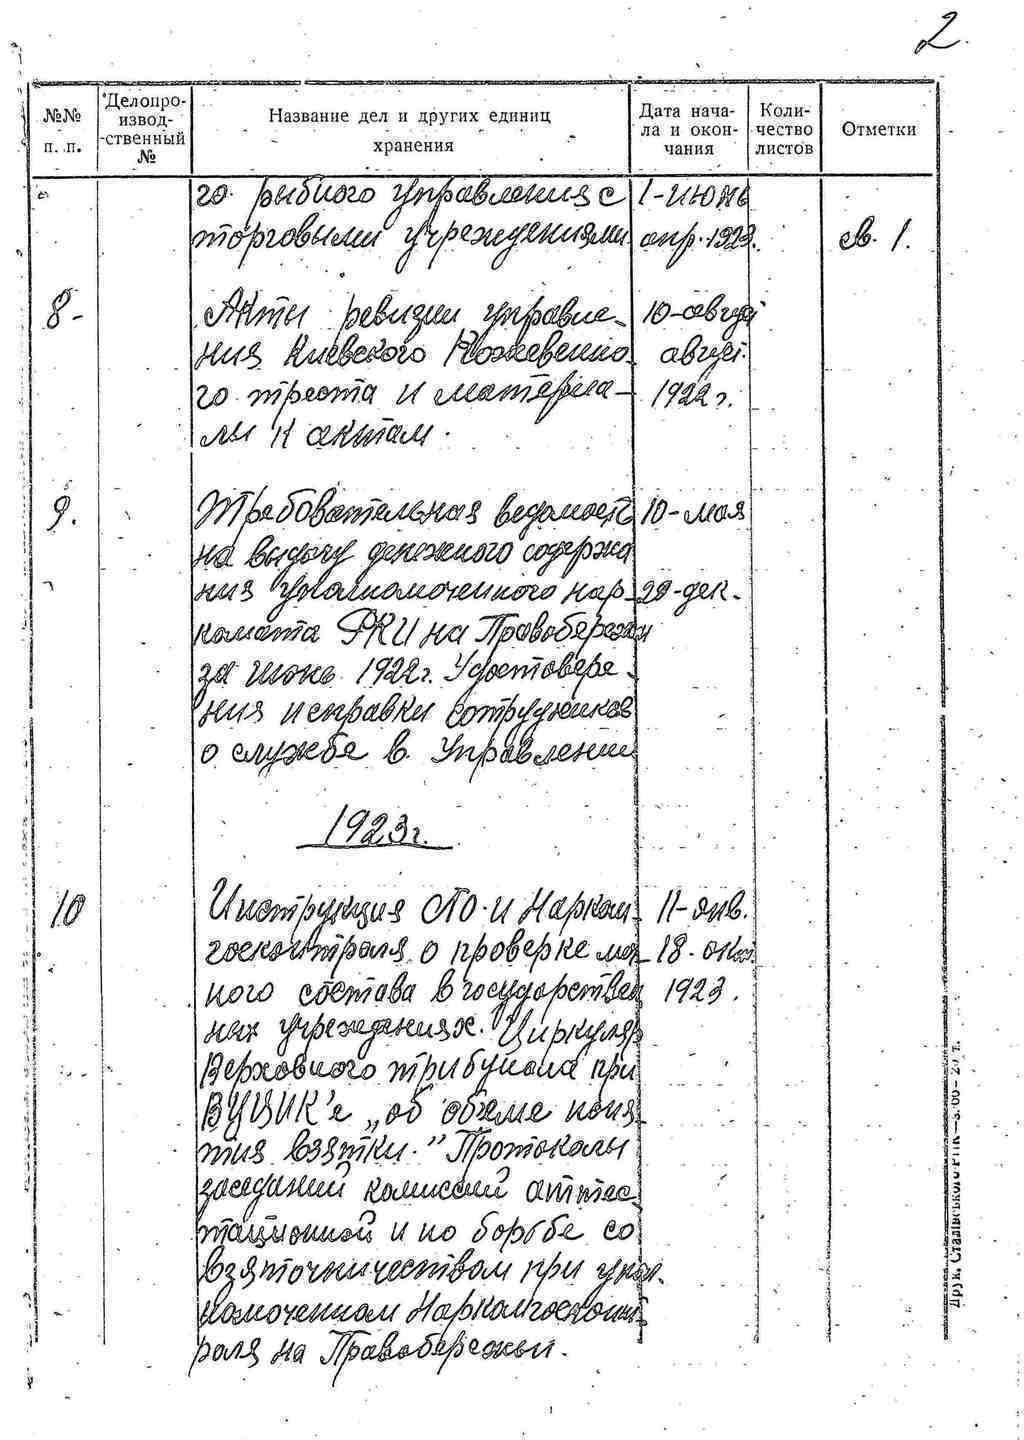 2.
№№ п. п.
Делопро-
извод-
ственный
№
Название дел и других единиц
хранения
Дата нача-
ла и окон-
чания
Коли-
чество
листов
Отметки
го рыбного управления с 1-июнь
торговыми учреждениями апр. 1923. св. 1.
8- Акты ревизии управле- 10-август
ния Киевского Кожевенно- август.
го треста и материа- 1922 г.
лы к актам.
9. Требовательная ведомость 10-мая
на выдачу денежного содержа
ния уполномоченного нар- 29-дек.
комата РКИ на Правобережьи
за июнь 1922г. Удостовере-
ния и справки сотрудников
о службе в Управлении
1923г.
10 Инструкция СТО и Нарком- 11-янв.
госконтроля о проверке лич- 18-окт.
ного состава в государствен 1923.
ных учреждениях. Циркуляр
Верховного трибунала при
ВУЦИК'е „об объеме поня-
тия взятки." Протоколы
заседаний комиссий аттес
тационной и по борьбе со
взяточничеством при упол-
номоченном Наркомгосконт-
роля на Правобережьи.
Друк. Сталінського